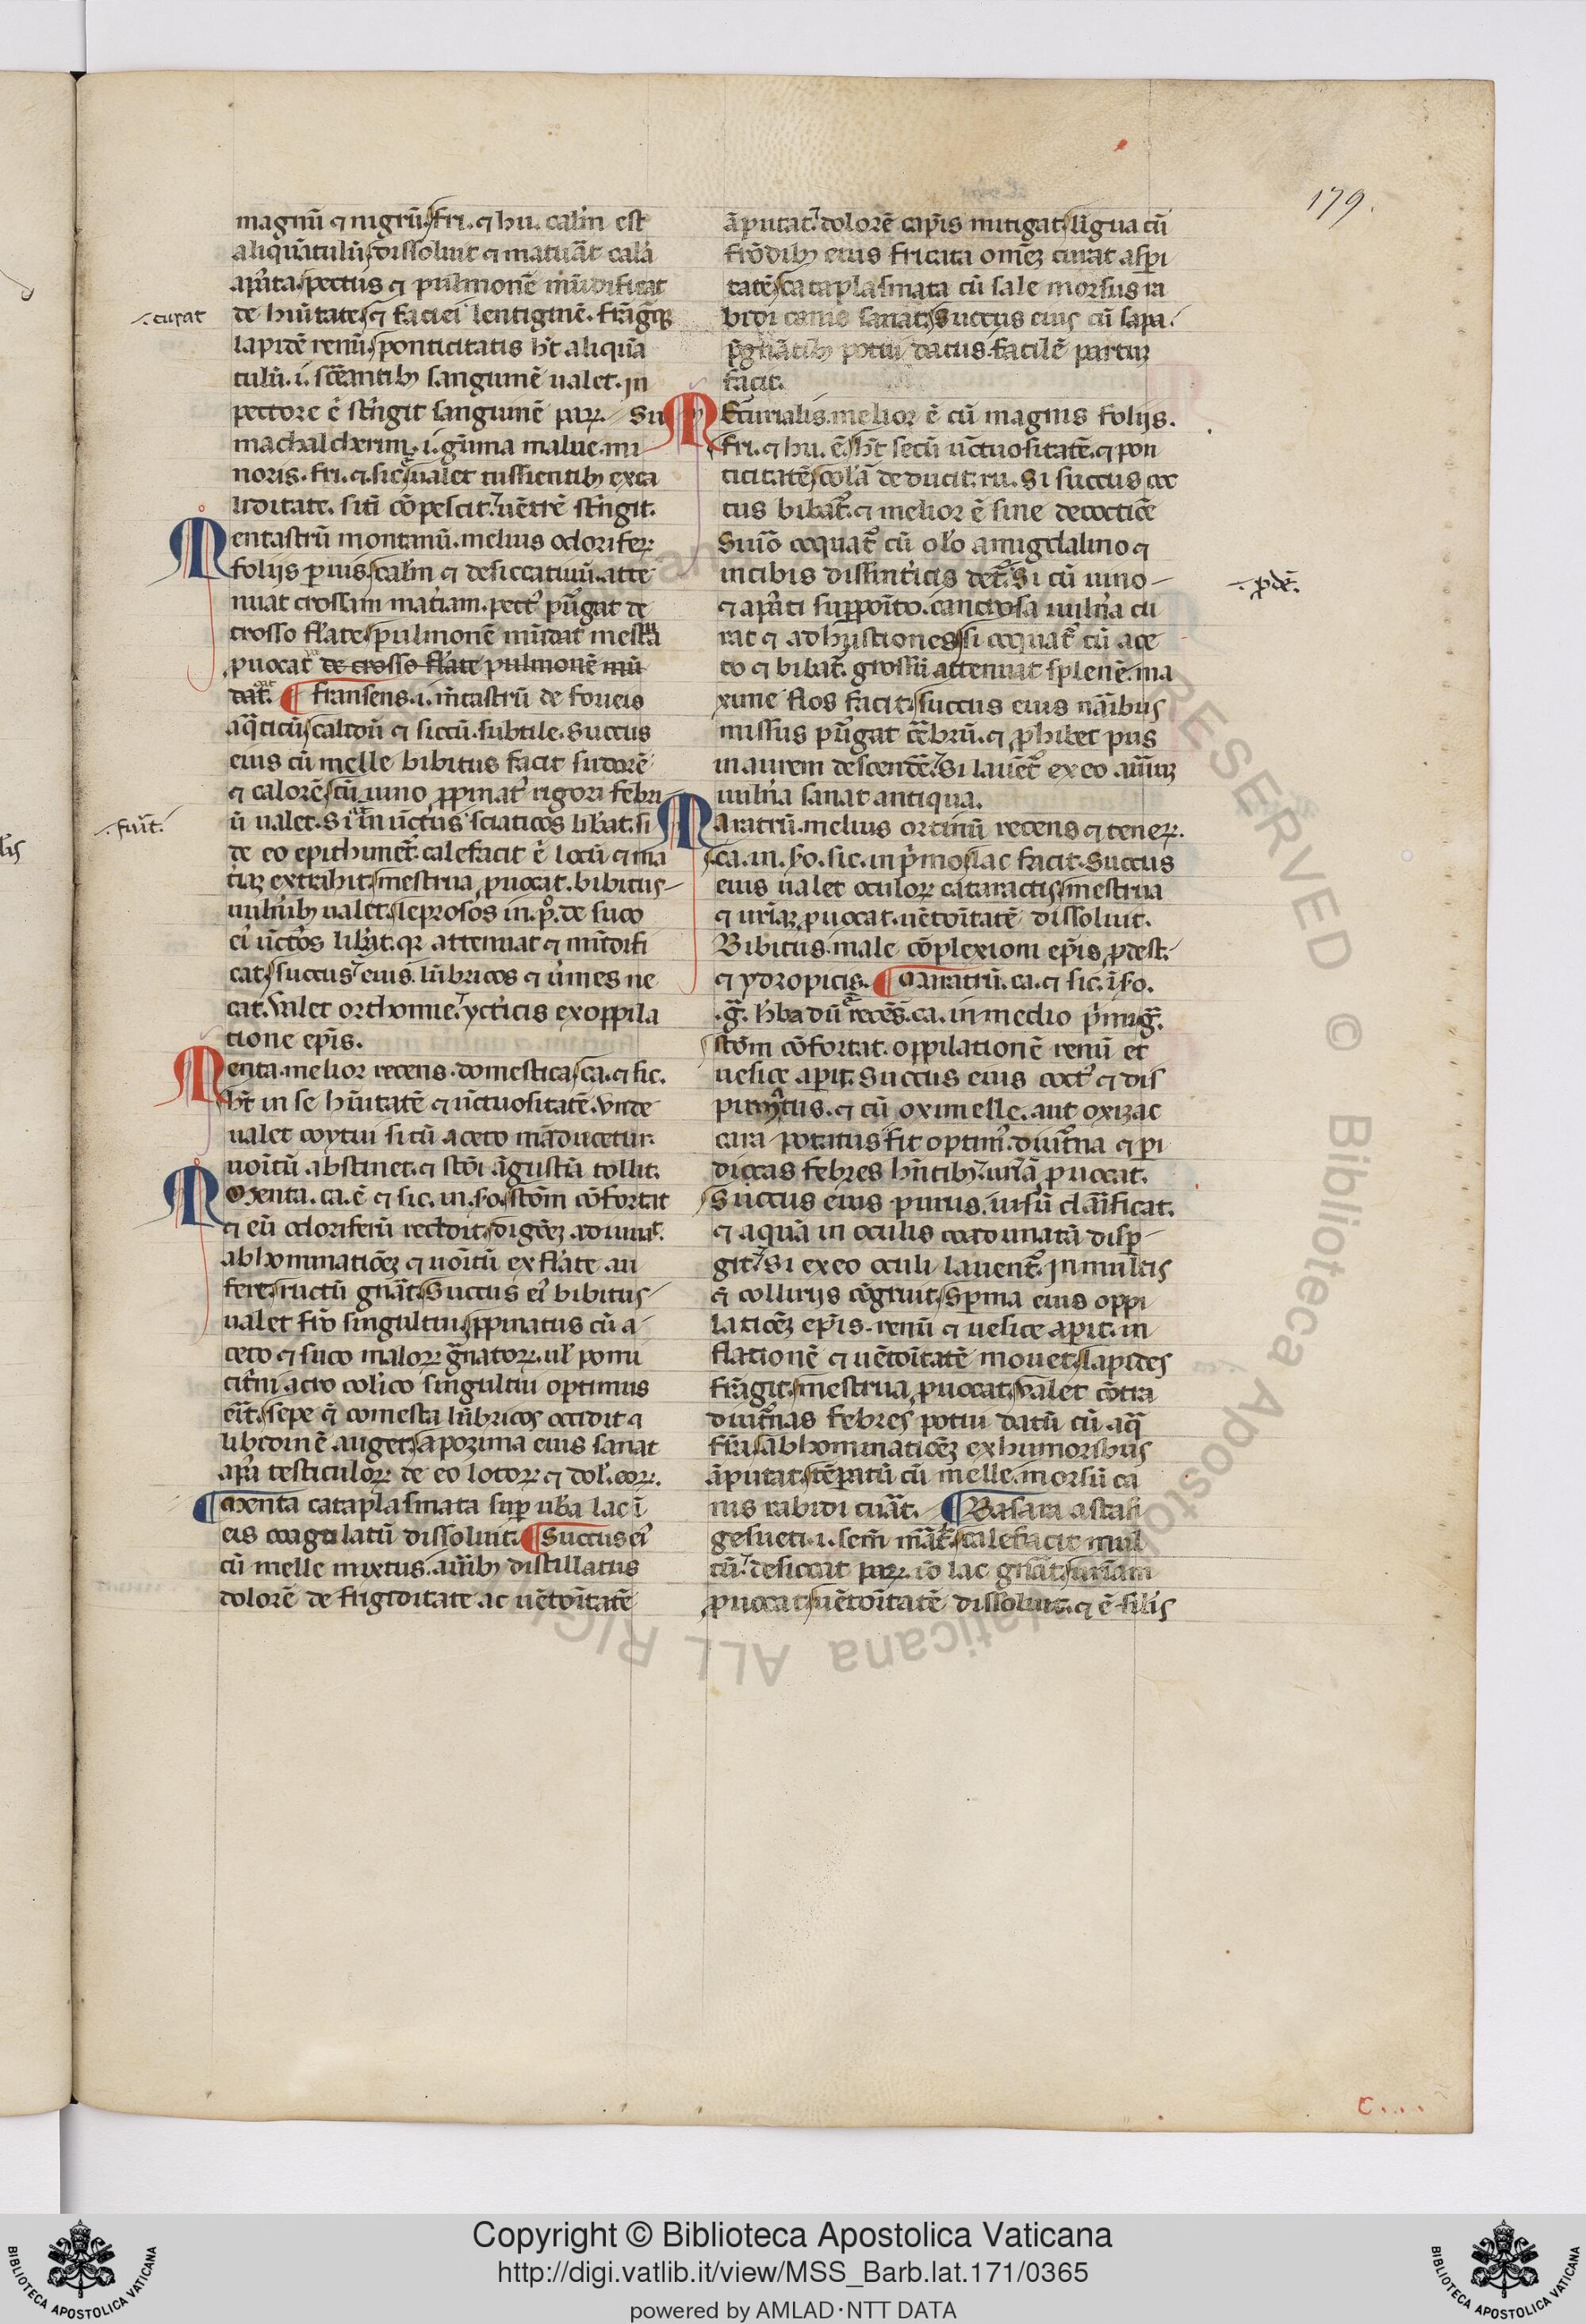 179.
magnũ ⁊ nigrũ. fri. ⁊ hu. calin̄ est
aliquãtulũ dissoluit ⁊ maturãt cala
apata. pectus ⁊ pulmonẽ mũdificat
.·. curat
de hũitate. ⁊ faciei lentiginẽ. frãgitqꝫ
lapidẽ renũ. ponticitatis ht̄ aliquã
tulũ. i. scēantibꝫ sanguinẽ ualet. in
pectore ē strĩgit sanguinẽ paꝝ. Su
machalcherim. i. gũma malue. mi
noris. fri. ⁊ sic̄. ualet tussientibꝫ ex ca
liditate. sitĩ cõpescit. uẽtrẽ strĩgit.
Mentastrũ montanũ. melius odorifeꝝ
folijs puis. calin̄ ⁊ desiccatiuũ. atte
nuat crossam mat̃iam. pect⁹ purgat de
crosso flāte. pulmonẽ mũdat mestrua
ꝓuocat de crosso flāte pulmonẽ mũ
dat. ¶ fransens. i. mẽtastrũ de foueis
aq̃ticũ calidũ ⁊ siccũ. subtile. Succus
eius cũ melle bibitus facit sudorẽ
⁊ calorẽ. cũ uino ꝓpinat⁹ rigori febri
.·. fuit̃.
ũ ualet. Si in ũctus sciaticos libat. si
de eo epithimet̃. calefacit ē locũ ⁊ ma
t̃iaꝫ extrahit. mestrua ꝓuocat. bibitus
uuln̄ibꝫ ualet. leprosos in. p⁰. de suco
ei⁹ ũctos libat. qꝛ attenuat ⁊ mũdifi
cat. succus eius lũbricos ⁊ ũmes ne
cat. Valet orthomie. yct̃icis ex oppila
tione ep̃is.
Menta. melior recens. domestica. ca. ⁊ sic.
ht̄ in se hũitatẽ ⁊ ũctuositatẽ. vnde
ualet coytui si cũ aceto mãducetur.
uoĩtũ abstinet. ⁊ stõi ãgustiã tollit.
Menta. ca. ē ⁊ sic. in. so. stom̃ cõfortat
⁊ eũ odoriferũ reddit. digẽoꝫ adiuuat.
abhominatiõeꝫ ⁊ uoĩtũ ex flāte au
fert. ructũ gñat. Succus ei⁹ bibitus
ualet fr̃o singultui. ꝓpinatus cũ a
ceto ⁊ suco maloꝝ g̃natoꝝ. ul̄ pomi
citr̃ni acro colĩco singultui optimus
erit̃. sepe q̃ comesta lũbricos occidit ⁊
libidinẽ auget. apozima eius sanat
apa testiculoꝝ de eo lotoꝝ ⁊ dol̄. eoꝝ.
¶ Menta cataplasmata sup ub̃a lac ĩ
eis coagulatũ dissoluit. ¶ Succus ei⁹
cũ melle mixtus. auribꝫ distillatus
dolorẽ de frigiditate ac uẽtoĩtatẽ
ãputat. dolorẽ capĩs mitigat. lĩgua cũ
frõdibꝫ eius fricata omẽꝫ curat asp̃i
tatẽ. cataplasmata cũ sale morsus ra
bidi canis sanat. Succus eius cũ sapa.
p̃gnãtibꝫ potui datus. facilẽ partuꝫ
facit.
Mercurialis. melior ē cũ magnis folijs.
fri. ⁊ hu. ē. ht̄ secũ ũctuositatẽ. ⁊ pon
ticitatẽ. colãm deducit. ru. Si succus coc
tus bibat̃. ⁊ melior ē sine decoctiõe
Suiuõ coquat̃ cũ olo amigdalino ⁊
.·. ꝓdẽ.
in cibis dissint̃icis det̃. Si cũ uino
⁊ apati supponito. cancrosa uuln̄a cu
rat ⁊ ad hustiones. si coquat̃ cũ ace
to ⁊ bibat̃. grossũ attenuat splenẽ. ma
xime flos facit. succus eius nãribus
missus purgat cẽbrũ. ⁊ ꝓhibet pus
in aurem descendẽ. Si lauet̃ ex eo auriuꝫ
uuln̄a sanat antiqua.
Maratrũ. melius ortinũ recens ⁊ teneꝝ.
ca. in. so. sic. in p̃mo. lac facit. Succus
eius ualet oculoꝝ cataractis. mestrua
⁊ urĩaꝫ ꝓuocat. uẽtoĩtatẽ dissoluit.
Bibitus. male cõplexioni ep̃is ꝓdest.
⁊ ydropicis. ¶ Maratrũ. ca. ⁊ sic. ĩ. so.
.g̃. hb̃a dũ ē recẽs. ca. in medio p̃mi g̃.
stom̃ cõfortat. oppilationẽ renũ et
uesice aperit. Succus eius coct⁹ ⁊ dis
pumatus. ⁊ cũ oximelle. aut oxizac
cara potatus fit optim⁹. diut̃na ⁊ pi
diocas febres hñtibꝫ. urĩã ꝓuocat.
Succus eius purus. uisũ clarificat.
⁊ aquã in oculis coadunatã disp
git. Si ex eo oculi lauent̃. In multis
q̃ collirijs cõgruit. Sperma eius oppi
latiõeꝫ ep̃is. renũ ⁊ uesice aperit. in
flationẽ ⁊ uẽtoĩtatẽ mouet. lapides
frãgit. mestrua ꝓuocat. Valet cõtra
diut̃nas febres potui datũ cũ aq̃
fr̃a. abhominatiõeꝫ ex humoribus
ãputat. tẽperatũ cũ melle. morsũ ca
nis rabidi curat. ¶ Basara astafi
gesueti. i. sem̃ mãt̃. calefacit mul
tũ. desiccat paꝝ. iõ lac gñat. urinam
ꝓuocat. uẽtoĩtatẽ dissoluit. ⁊ ē silĩs
c....
Copyright © Biblioteca Apostolica Vaticana
http://digi.vatlib.it/view/MSS_Barb.lat.171/0365
powered by AMLAD·NTT DATA
BIBLIOTECA APOSTOLICA VATICANA
BIBLIOTECA APOSTOLICA VATICANA